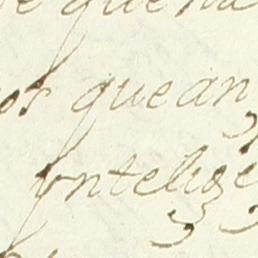 e que na
os quean
yntelige